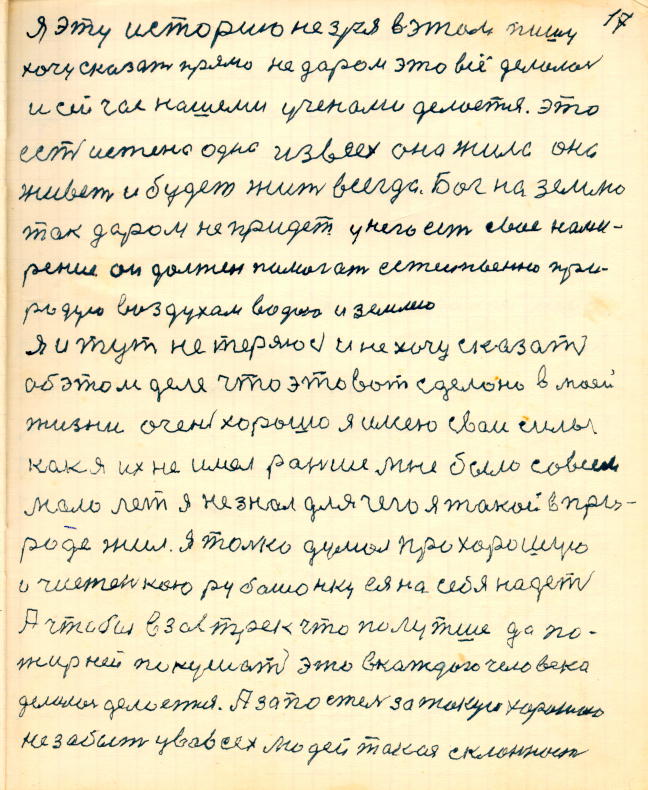 17
я эту историю не зря в этом пишу
хочу сказат прямо не даром это всё делолос
и сейчас нашеми ученами делоется. это
ест истено одна из всех она жила она
живет и будет жит всегда. Бог на землю
так даром не придет. у него ест свое нами-
рение он должен помогат естественно при-
родую воздухам водою и землею
Я и тут не теряюс и не хочу сказат
об этом деле что это вот сделоно в моей
жизни очен хорошо я имею сваи силы
как я их не имел раньше мне было совсем
мало лет я не знал для чего я такой в при-
роде жил. Я толко думал про хорошую
и чистенкою рубашонку ея на себя надет
А чтобы в завтрек что полутше да по-
жирней покушат это в каждого человека
делолос делоется. А за постел за такую хорошою
не забыт у вав сех людей такая склонност